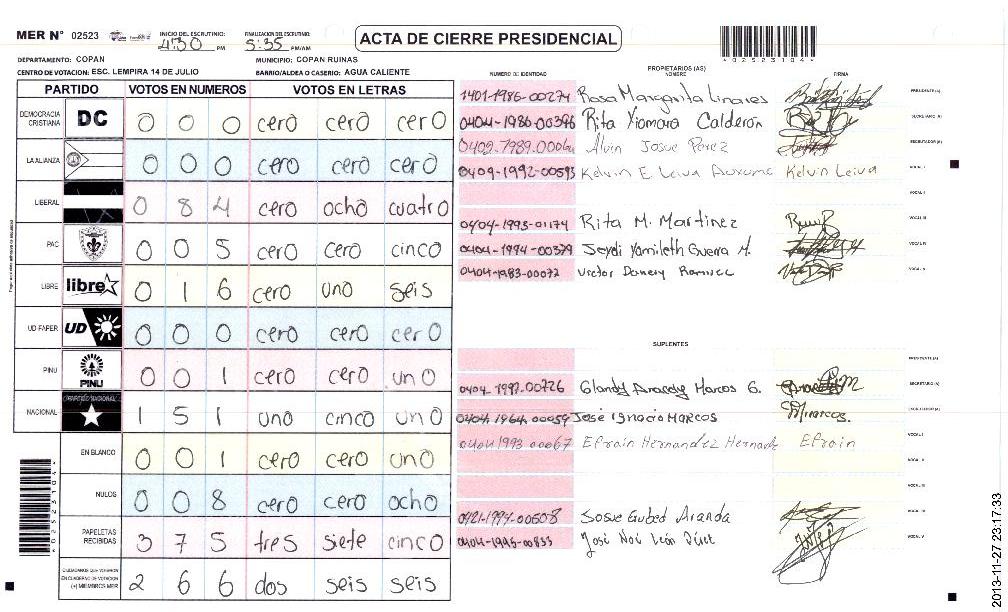 MER N° 02523 INICIO DEL ESCRUTINIO: 4:30 PM FINALIZACION DEL ESCRUTINIO: 5:35 PM/AM
ACTA DE CIERRE PRESIDENCIAL
DEPARTAMENTO: COPAN MUNICIPIO: COPAN RUINAS
CENTRO DE VOTACION: ESC. LEMPIRA 14 DE JULIO BARRIO/ALDEA O CASERIO: AGUA CALIENTE
+02523104+
PARTIDO VOTOS EN NUMEROS VOTOS EN LETRAS
DEMOCRACIA CRISTIANA DC 0 0 0 cero cero cero
LA ALIANZA 0 0 0 cero cero cero
LIBERAL 0 8 4 cero ocho cuatro
PAC 0 0 5 cero cero cinco
LIBRE libre 0 1 6 cero uno seis
UD-FAPER UD 0 0 0 cero cero cero
PINU PINU 0 0 1 cero cero uno
NACIONAL PARTIDO NACIONAL 1 5 1 uno cinco uno
EN BLANCO 0 0 1 cero cero uno
NULOS 0 0 8 cero cero ocho
PAPELETAS RECIBIDAS 3 7 5 tres siete cinco
CIUDADANOS QUE VOTARON EN CUADERNO DE VOTACION (+) MIEMBROS MER 2 6 6 dos seis seis
+02523104+
PROPIETARIOS (AS)
NUMERO DE IDENTIDAD NOMBRE FIRMA
1401-1986-00274 Rosa Margarita Linares PRESIDENTE (A)
0404-1986-00396 Rita Xiomara Calderón SECRETARIO (A)
Alvin Josue Perez ESCRUTADOR (A)
0409-1992-00593 Kelvin E. Leiva Kelvin Leiva VOCAL I
VOCAL II
0404-1993-01174 Rita M. Martinez VOCAL III
0404-1994-00379 Jeydi Yamileth Guerra M. VOCAL IV
0404-1983-00072 Victor Ramirez VOCAL V
SUPLENTES
PRESIDENTE (A)
0404-1997-00726 Marcos G. SECRETARIO (A)
0404-1964-00059 José Ignacio Marcos ESCRUTADOR (A)
0404 1993 00067 Efrain Hernandez Efrain VOCAL I
VOCAL II
VOCAL III
0421-1994-00508 Aranda VOCAL IV
José Noé León VOCAL V
2013-11-27 23:17:33